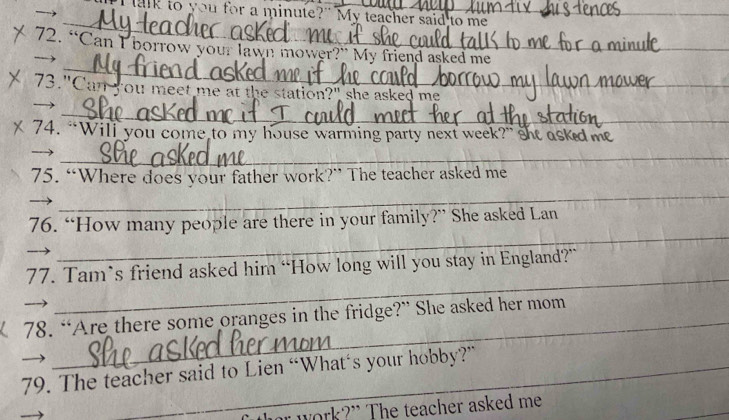 talk to you for a minute?" My teacher said to me
could help him fix his fences
→ My teacher asked me if she could talk to me for a minute
× 72. "Can I borrow your lawn mower?" My friend asked me
→ My friend asked me if he could borrow my lawn mower
× 73."Can you meet me at the station?" she asked me
→ She asked me if I could meet her at the station
× 74. "Will you come to my house warming party next week?" she asked me
→ She asked me
75. "Where does your father work?" The teacher asked me
→
76. "How many people are there in your family?" She asked Lan
→
77. Tam's friend asked him "How long will you stay in England?"
→
78. "Are there some oranges in the fridge?" She asked her mom
→ She asked her mom
79. The teacher said to Lien "What's your hobby?"
→
work?" The teacher asked me